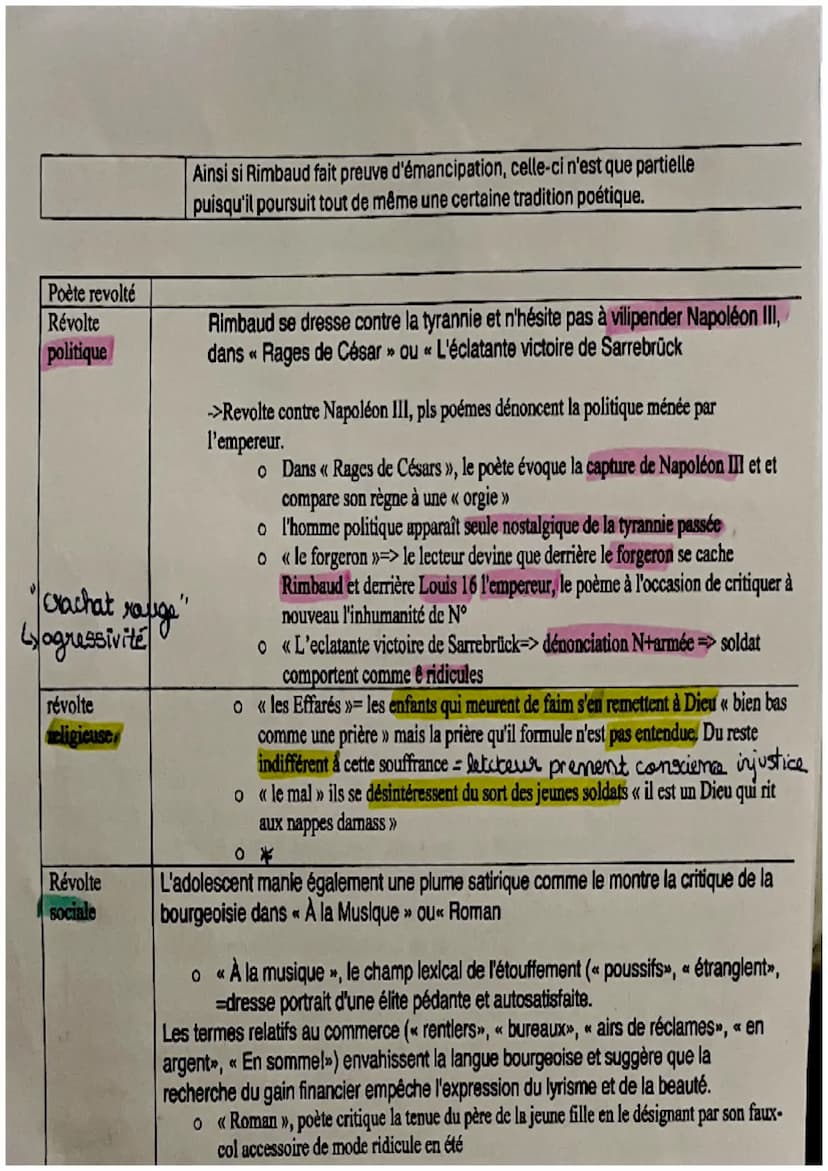 Ainsi si Rimbaud fait preuve d'émancipation, celle-ci n'est que partielle
puisqu'il poursuit tout de même une certaine tradition poétique.
Poète revolté
Révolte
politique
Rimbaud se dresse contre la tyrannie et n'hésite pas à vilipender Napoléon III,
dans « Rages de César » ou « L'éclatante victoire de Sarrebrück
->Revolte contre Napoléon III, pls poémes dénoncent la politique ménée par
l'empereur.
o Dans « Rages de Césars », le poète évoque la capture de Napoléon III et et
compare son règne à une « orgie »
o l'homme politique apparaît seule nostalgique de la tyrannie passée
o « le forgeron »=> le lecteur devine que derrière le forgeron se cache
Rimbaud et derrière Louis 16 l'empereur, le poème à l'occasion de critiquer à
nouveau l'inhumanité de N°
o « L'eclatante victoire de Sarrebrück=> dénonciation N+armée => soldat
comportent comme ê ridicules
"Crachat rouge"
↳ agressivité
révolte
religieuse
o « les Effarés »= les enfants qui meurent de faim s'en remettent à Dieu « bien bas
comme une prière » mais la prière qu'il formule n'est pas entendue. Du reste
indifférent à cette souffrance = letcteur prennent conscience injustice
o « le mal » ils se désintéressent du sort des jeunes soldats « il est un Dieu qui rit
aux nappes damass »
o *
Révolte
sociale
L'adolescent manie également une plume satirique comme le montre la critique de la
bourgeoisie dans « À la Musique » ou« Roman
o « À la musique », le champ lexical de l'étouffement (« poussifs», « étranglent»,
=dresse portrait d'une élite pédante et autosatisfaite.
Les termes relatifs au commerce (« rentiers», « bureaux», « airs de réclames», « en
argent», « En somme!») envahissent la langue bourgeoise et suggère que la
recherche du gain financier empêche l'expression du lyrisme et de la beauté.
o « Roman », poète critique la tenue du père de la jeune fille en le désignant par son faux-
col accessoire de mode ridicule en été